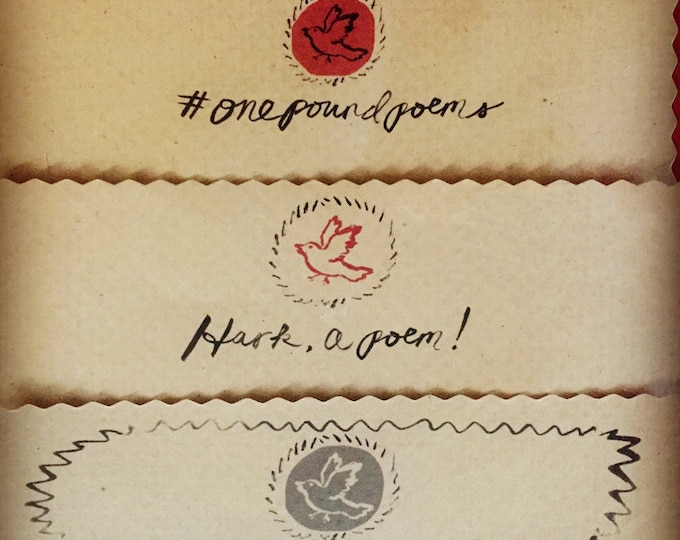 #onepoundpoems
Hark, a poem!